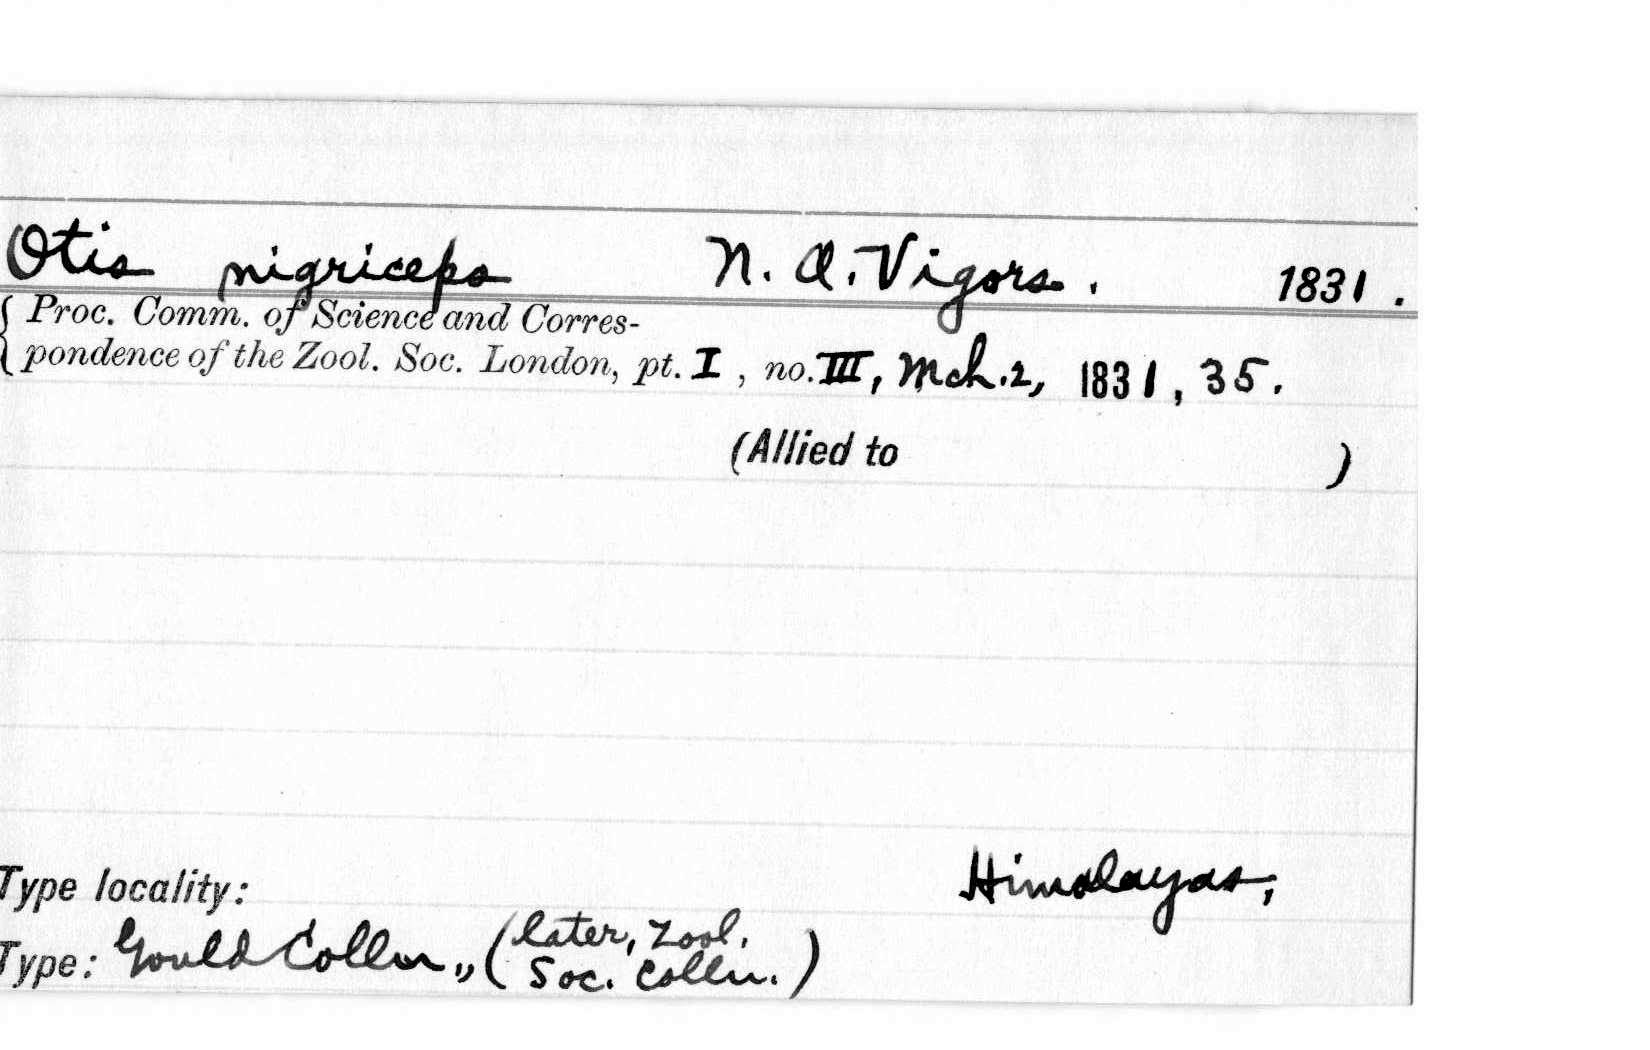 Otis nigriceps N. A. Vigors. 1831.
{ Proc. Comm. of Science and Corres-
pondence of the Zool. Soc. London, pt. I, no. III, Mch. 2, 1831, 35.
(Allied to )
Type locality: Himalayas,
Type: Gould Colln., (later, Zool.
Soc. Colln.)